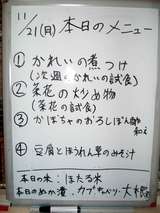 11/21(月) 本日のメニュー
① かれいの煮つけ
(次週のかれいの試食)
② 菜花の炒め物
(菜花の試食)
③ かぼちゃのおろしぽん酢
和え
④ 豆腐とほうれん草のみそ汁
本日の米：ほたる米
本日のぬか漬 カブ、キャベツ、大根